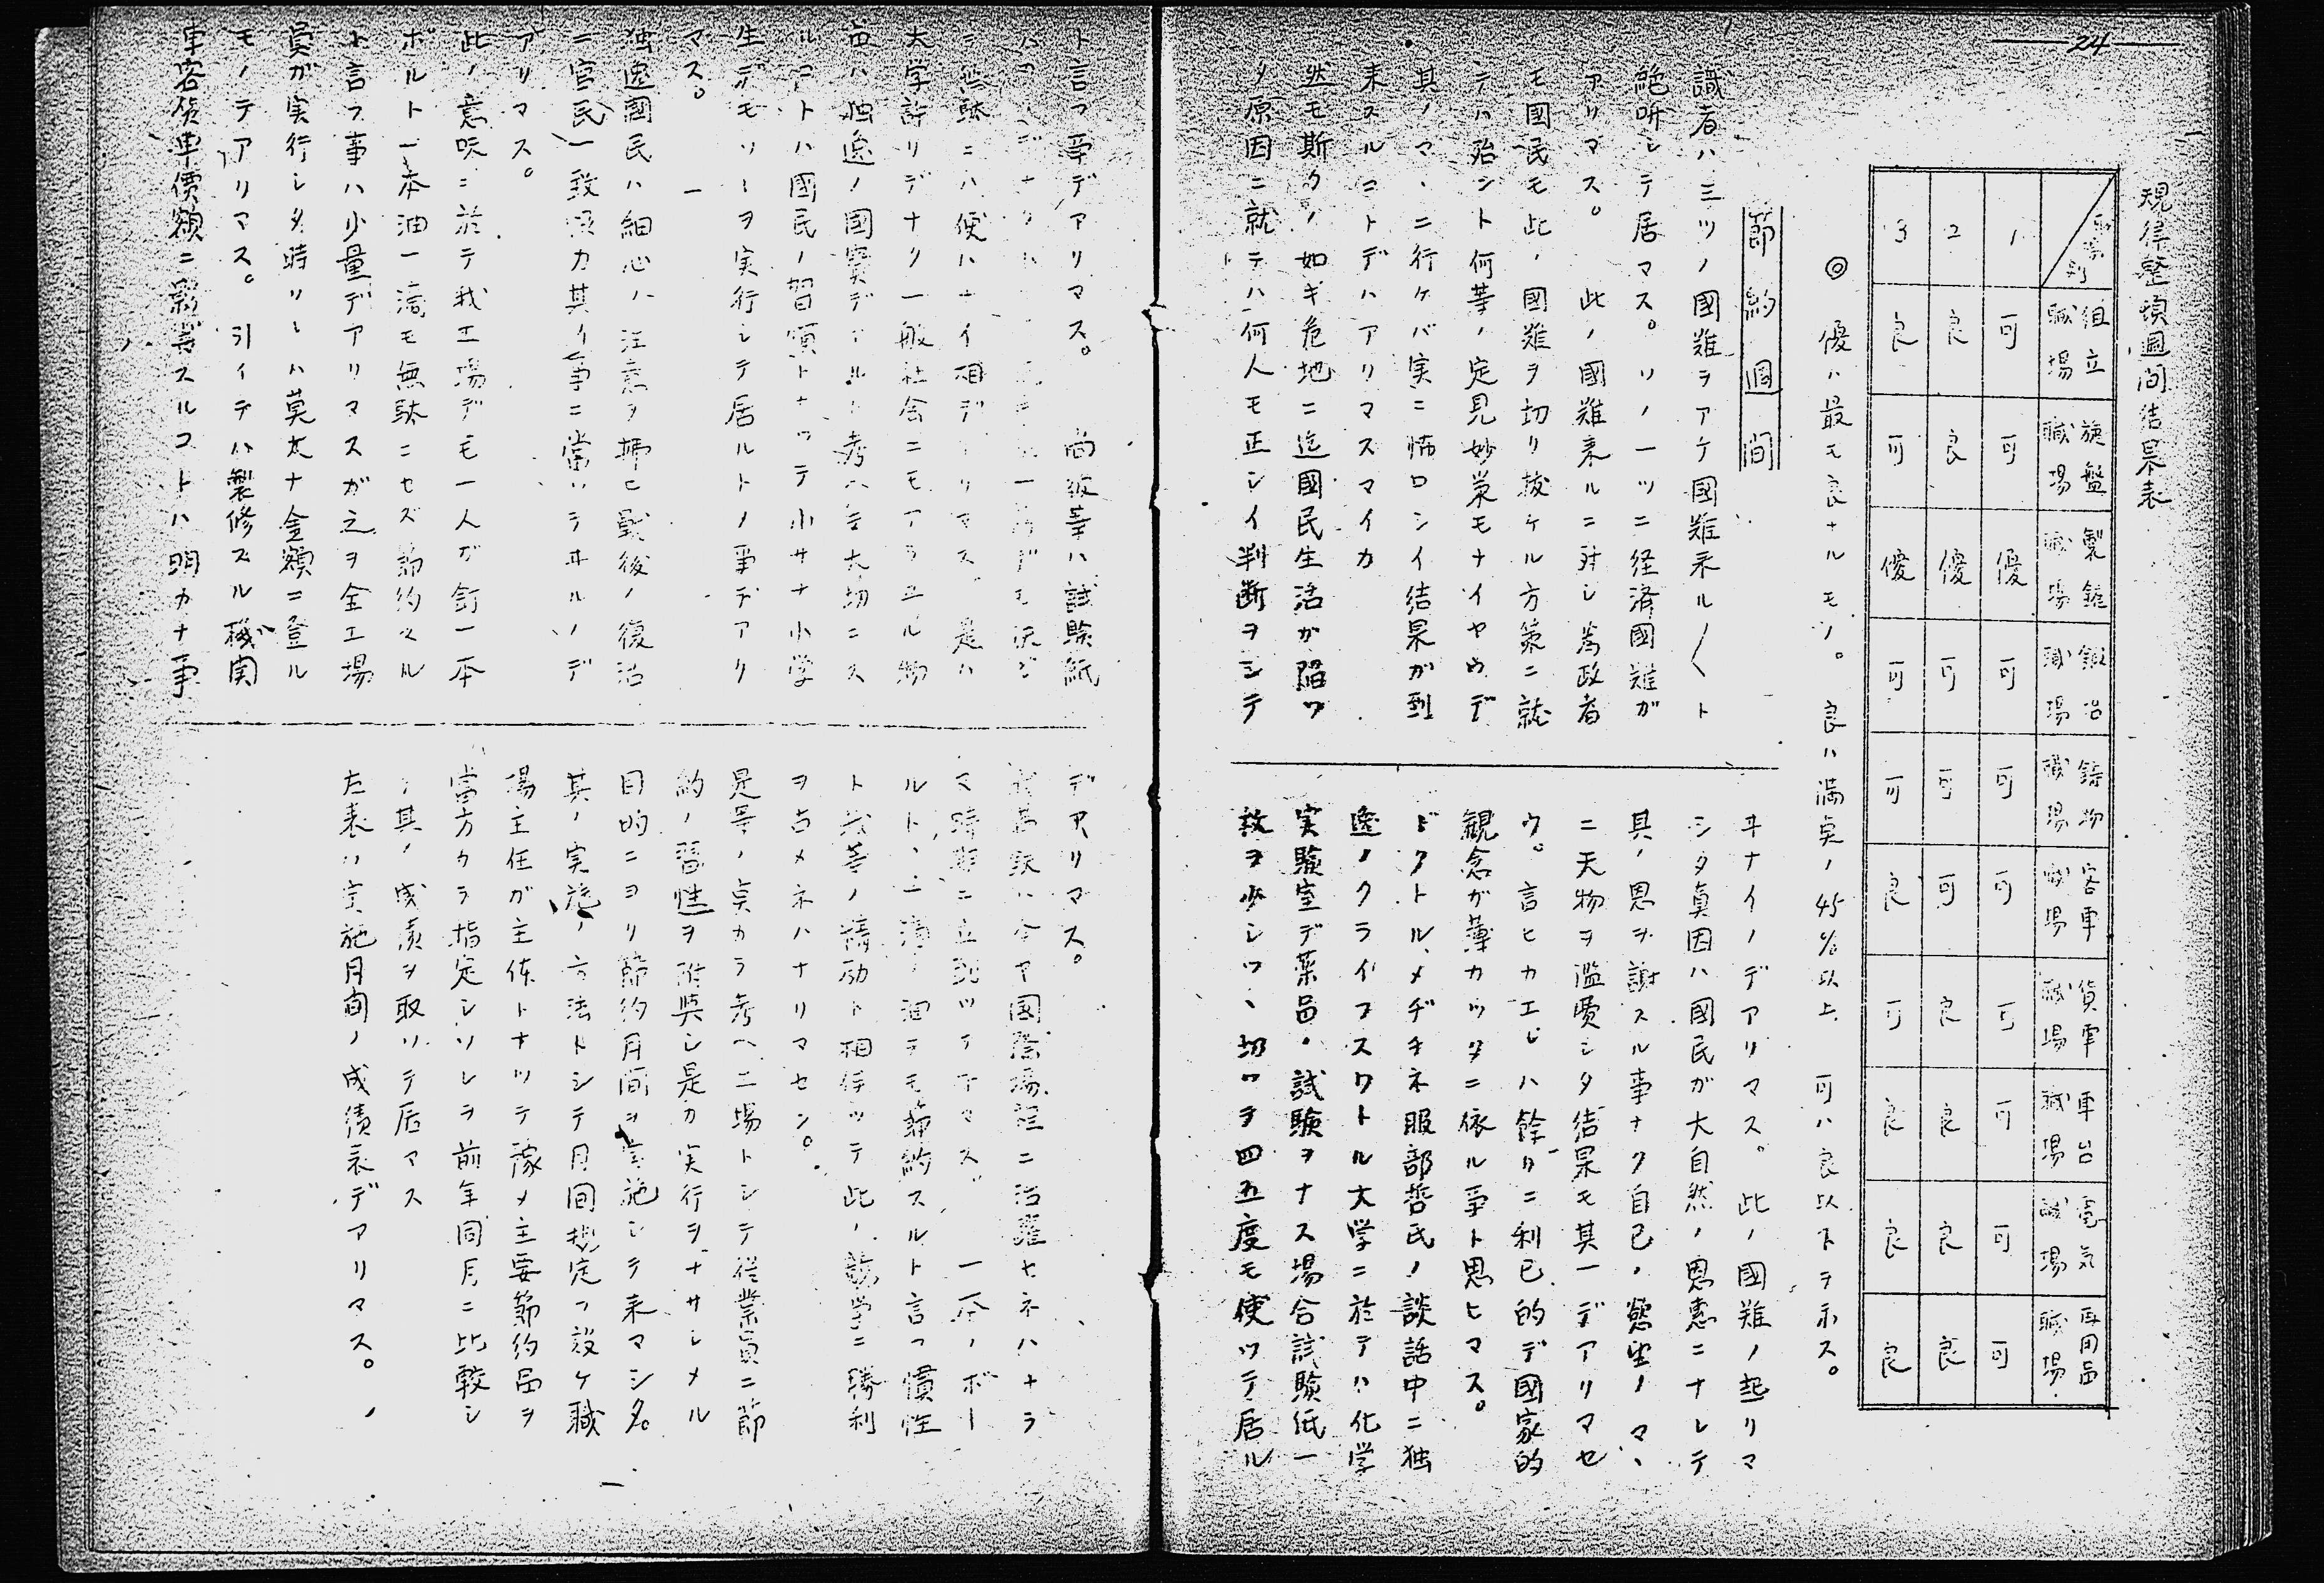 24
規律整頓週間結果表
組立職場 旋盤職場 製罐職場 鍛冶職場 鋳物職場 客車職場 貨車職場 車台職場 電気職場 再用品職場
1 可 可 優 可 可 可 可 可 可 可
2 良 良 優 可 可 可 良 良 良 良
3 良 可 優 可 可 良 可 良 良 良
◎ 優ハ最モ良ナルモノ。 良ハ満点ノ45%以上 可ハ良以下ヲ示ス。
節約週間
識者ハ三ツノ國難ヲアケ國難来ル〱ト
絶叫シテ居マス。ソノ一ツニ経済國難ガ
アリマス。 此ノ國難来ルニ対シ為政者
モ國民モ此ノ國難ヲ切リ抜ケル方策ニ就
テハ殆ント何等ノ定見妙策モナイヤウデ
其ノマヽニ行ケバ実ニ怖ロシイ結果ガ到
来スルコトデハアリマスマイカ
然モ斯クノ如キ危地ニ迄國民生活が陥ツ
タ原因ニ就テハ何人モ正シイ判断ヲシテ
ヰナイノデアリマス。此ノ國難ノ起リマ
シタ真因ハ國民ガ大自然ノ恩恵ニナレテ
其ノ恩ヲ謝スル事ナク自己ノ慾望ノマヽ
ニ天物ヲ濫費シタ結果モ其一デアリマセ
ウ。言ヒカエレハ餘リニ利己的デ國家的
観念ガ薄カッタニ依ル事ト思ヒマス。
ドクトル、メヂチネ服部哲氏ノ談話中ニ独
逸ノクライフスワトル大学ニ於テハ化学
実験室デ薬品ノ試験ヲナス場合試験紙一
枚ヲ少シヅヽ切ツヲ四五度モ使ツテ居ル
ト言フ事デアリマス。 尚彼等ハ試験紙
無駄ニハ使ハナイ相デアリマス、是ハ
大学許リデナク一般社会ニモアラユル物
品ハ独逸ノ國寳デアルト考ヘ大切ニス
ルコトハ國民ノ習慣トナッテ小サナ小学
生デモソレヲ実行シテ居ルトノ事デアリ
マス。
独逸國民ハ細心ノ注意ヲ拂ヒ戰後ノ復活
ニ官民一致協力其ノ事ニ當ツテヰルノデ
アリマス。
此ノ意味ニ於テ我工場デモ一人ガ釘一本
ボルト一本油一滴モ無駄ニセズ節約スル
ト言フ事ハ少量デアリマスガ之ヲ全工場
員ガ実行シタ時ソレハ莫大ナ金額ニ登ル
モノデアリマス。 引イテハ製修スル機関
車客貨車價額ニ影響スルコトハ明カナ事
デアリマス。
我國鉄ハ今ヤ国際場裡ニ活躍セネハナラ
マ時期ニ立到ツテヰマス。 一本ノボー
ルト、一滴ノ油ヲモ節約スルト言フ慣性
ト我等ノ精励ト相俟ッテ此ノ競争ニ勝利
ヲ占メネハナリマセン。
是等ノ点カラ考ヘ工場トシテ従業員ニ節
約ノ習性ヲ附與シ是カ実行ヲナサシメル
目的ニヨリ節約月間ヲ実施シテ来マシタ。
其ノ実施ノ方法トシテ月間規定ヲ設ケ職
場主任ガ主体トナッテ豫メ主要節約品ヲ
當方カラ指定シソレヲ前年同月ニ比較シ
ヽ其ノ成績ヲ取ッテ居マス
左表ハ実施月間ノ成績表デアリマス。